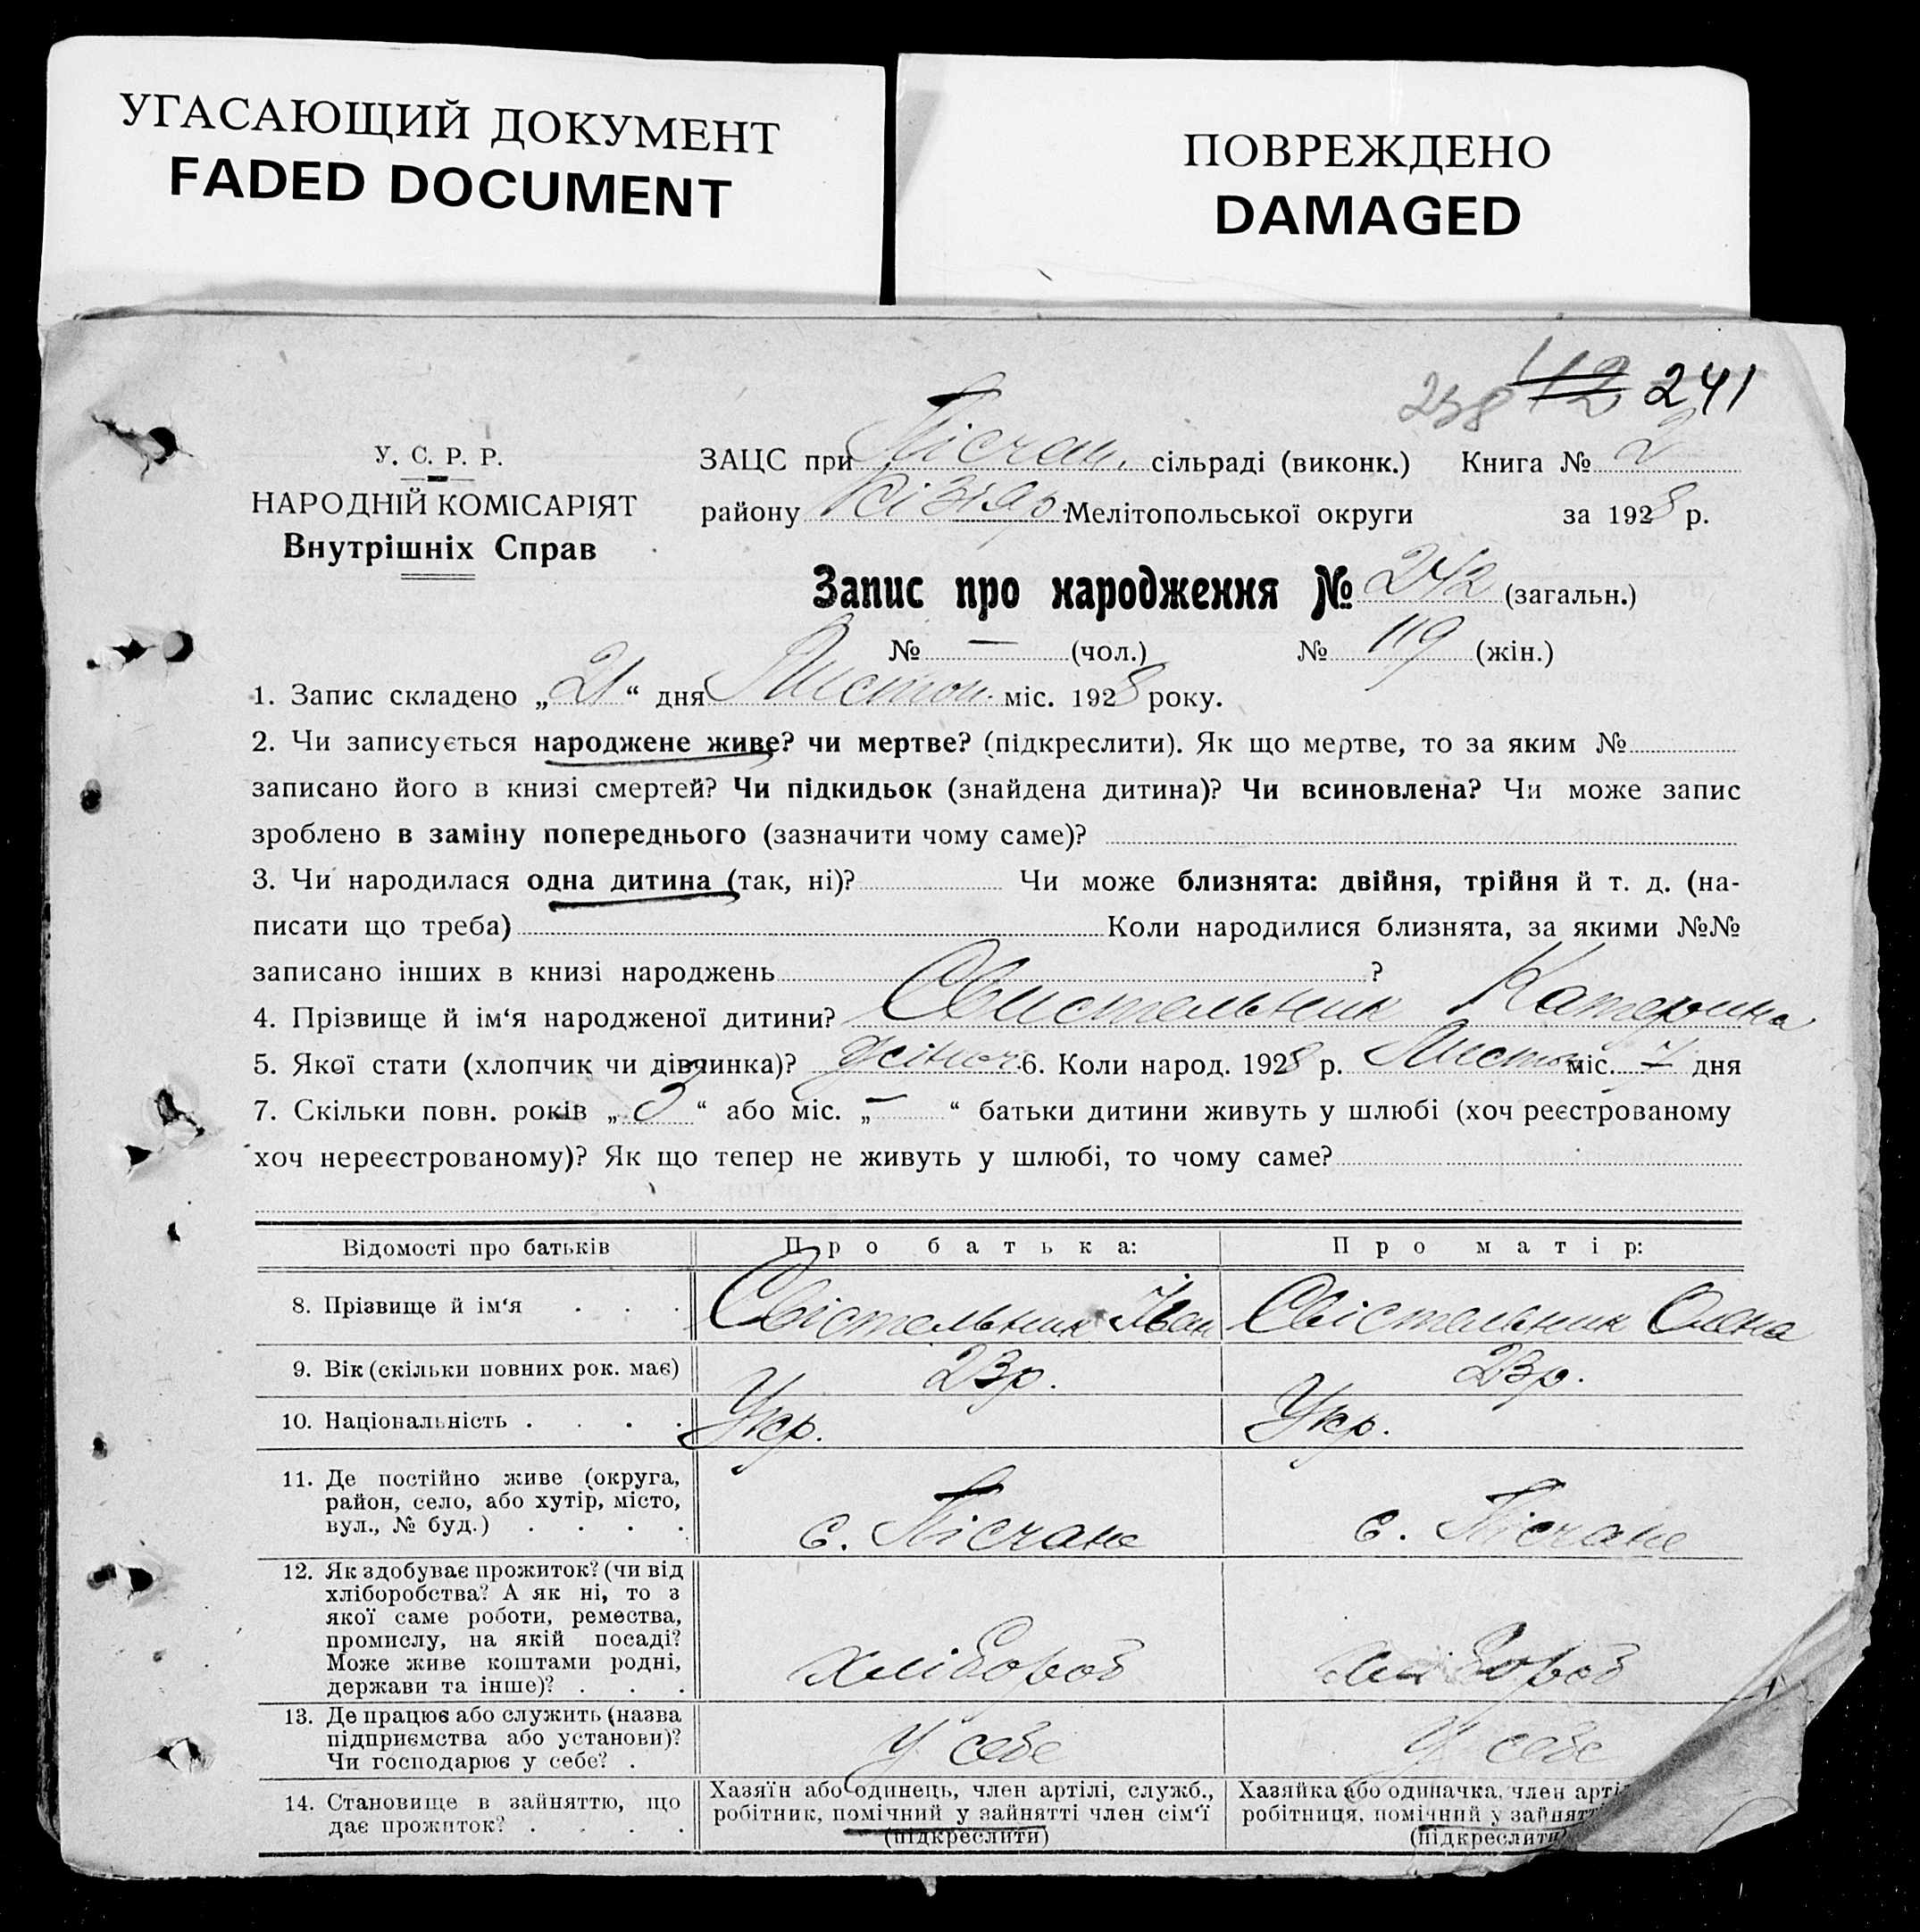 УГАСАЮЩИЙ ДОКУМЕНТ
FADED DOCUMENT
ПОВРЕЖДЕНО
DAMAGED
238 112 241
У. С. Р. Р.
НАРОДНІЙ КОМІСАРІЯТ
Внутрішніх Справ
ЗАЦС при Пісчан. сільраді (виконк.) Книга № 2
району Кізіяр. Мелітопольської округи за 1928 р.
Запис про народження № 242 (загальн.)
№ — (чол.) № 119 (жін.)
1. Запис складено „21“ дня Листоп. міс. 1928 року.
2. Чи записується народжене живе? чи мертве? (підкреслити). Як що мертве, то за яким №
записано його в книзі смертей? Чи підкидьок (знайдена дитина)? Чи всиновлена? Чи може запис
зроблено в заміну попереднього (зазначити чому саме)?
3. Чи народилася одна дитина (так, ні)? Чи може близнята: двійня, трійня й т. д. (на-
писати що треба) Коли народилися близнята, за якими №№
записано інших в книзі народжень ?
4. Прізвище й ім‘я народженої дитини? Свистельник Катерина
5. Якої стати (хлопчик чи дівчинка)? жіноч. 6. Коли народ. 1928 р. Листоп міс. 7 дня
7. Скільки повн. років „3“ або міс. „—“ батьки дитини живуть у шлюбі (хоч реєстрованому
хоч нереєстрованому)? Як що тепер не живуть у шлюбі, то чому саме?
Відомості про батьків Про батька: Про матір:
8. Прізвище й ім‘я . . . Свістельник Іван Свістельник Олена
9. Вік (скільки повних рок. має) 23р. 23р.
10. Національність . . . . Укр. Укр.
11. Де постійно живе (округа,
район, село, або хутір, місто,
вул., № буд.) . . . . с. Пісчане с. Пісчане
12. Як здобуває прожиток? (чи від
хліборобства? А як ні, то з
якої саме роботи, ремества,
промислу, на якій посаді?
Може живе коштами родні,
держави та інше)? . . . хлібороб хлібороб
13. Де працює або служить (назва
підприємства або установи)?
Чи господарює у себе? . У себе У себе
14. Становище в зайняттю, що
дає прожиток? . . . .
Хазяїн або одинець, член артілі, служб.,
робітник, помічний у зайнятті член сім‘ї
(підкреслити)
Хазяйка або одиначка, член арті
робітниця, помічний у зайнятт
(підкреслити)